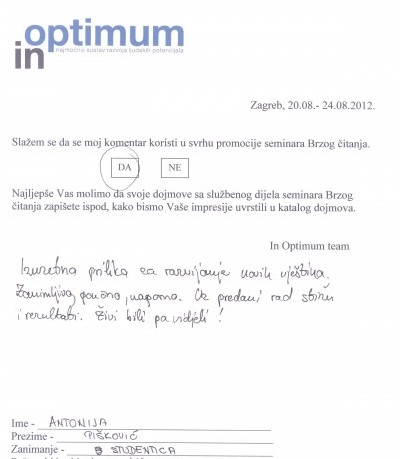 in optimum
najmoćniji sustav razvoja ljudskih potencijala
Zagreb, 20.08.- 24.08.2012.
Slažem se da se moj komentar koristi u svrhu promocije seminara Brzog čitanja.
DA NE
Najljepše Vas molimo da svoje dojmove sa službenog dijela seminara Brzog
čitanja zapišete ispod, kako bismo Vaše impresije uvrstili u katalog dojmova.
In Optimum team
Izuzetna prilika za razvijanje novih vještina.
Zanimljivo, poučno, naporno. Uz predani rad stižu
i rezultati. Živi bili pa vidjeli!
Ime - ANTONIJA
Prezime - PIŠKOVIĆ
Zanimanje - STUDENTICA